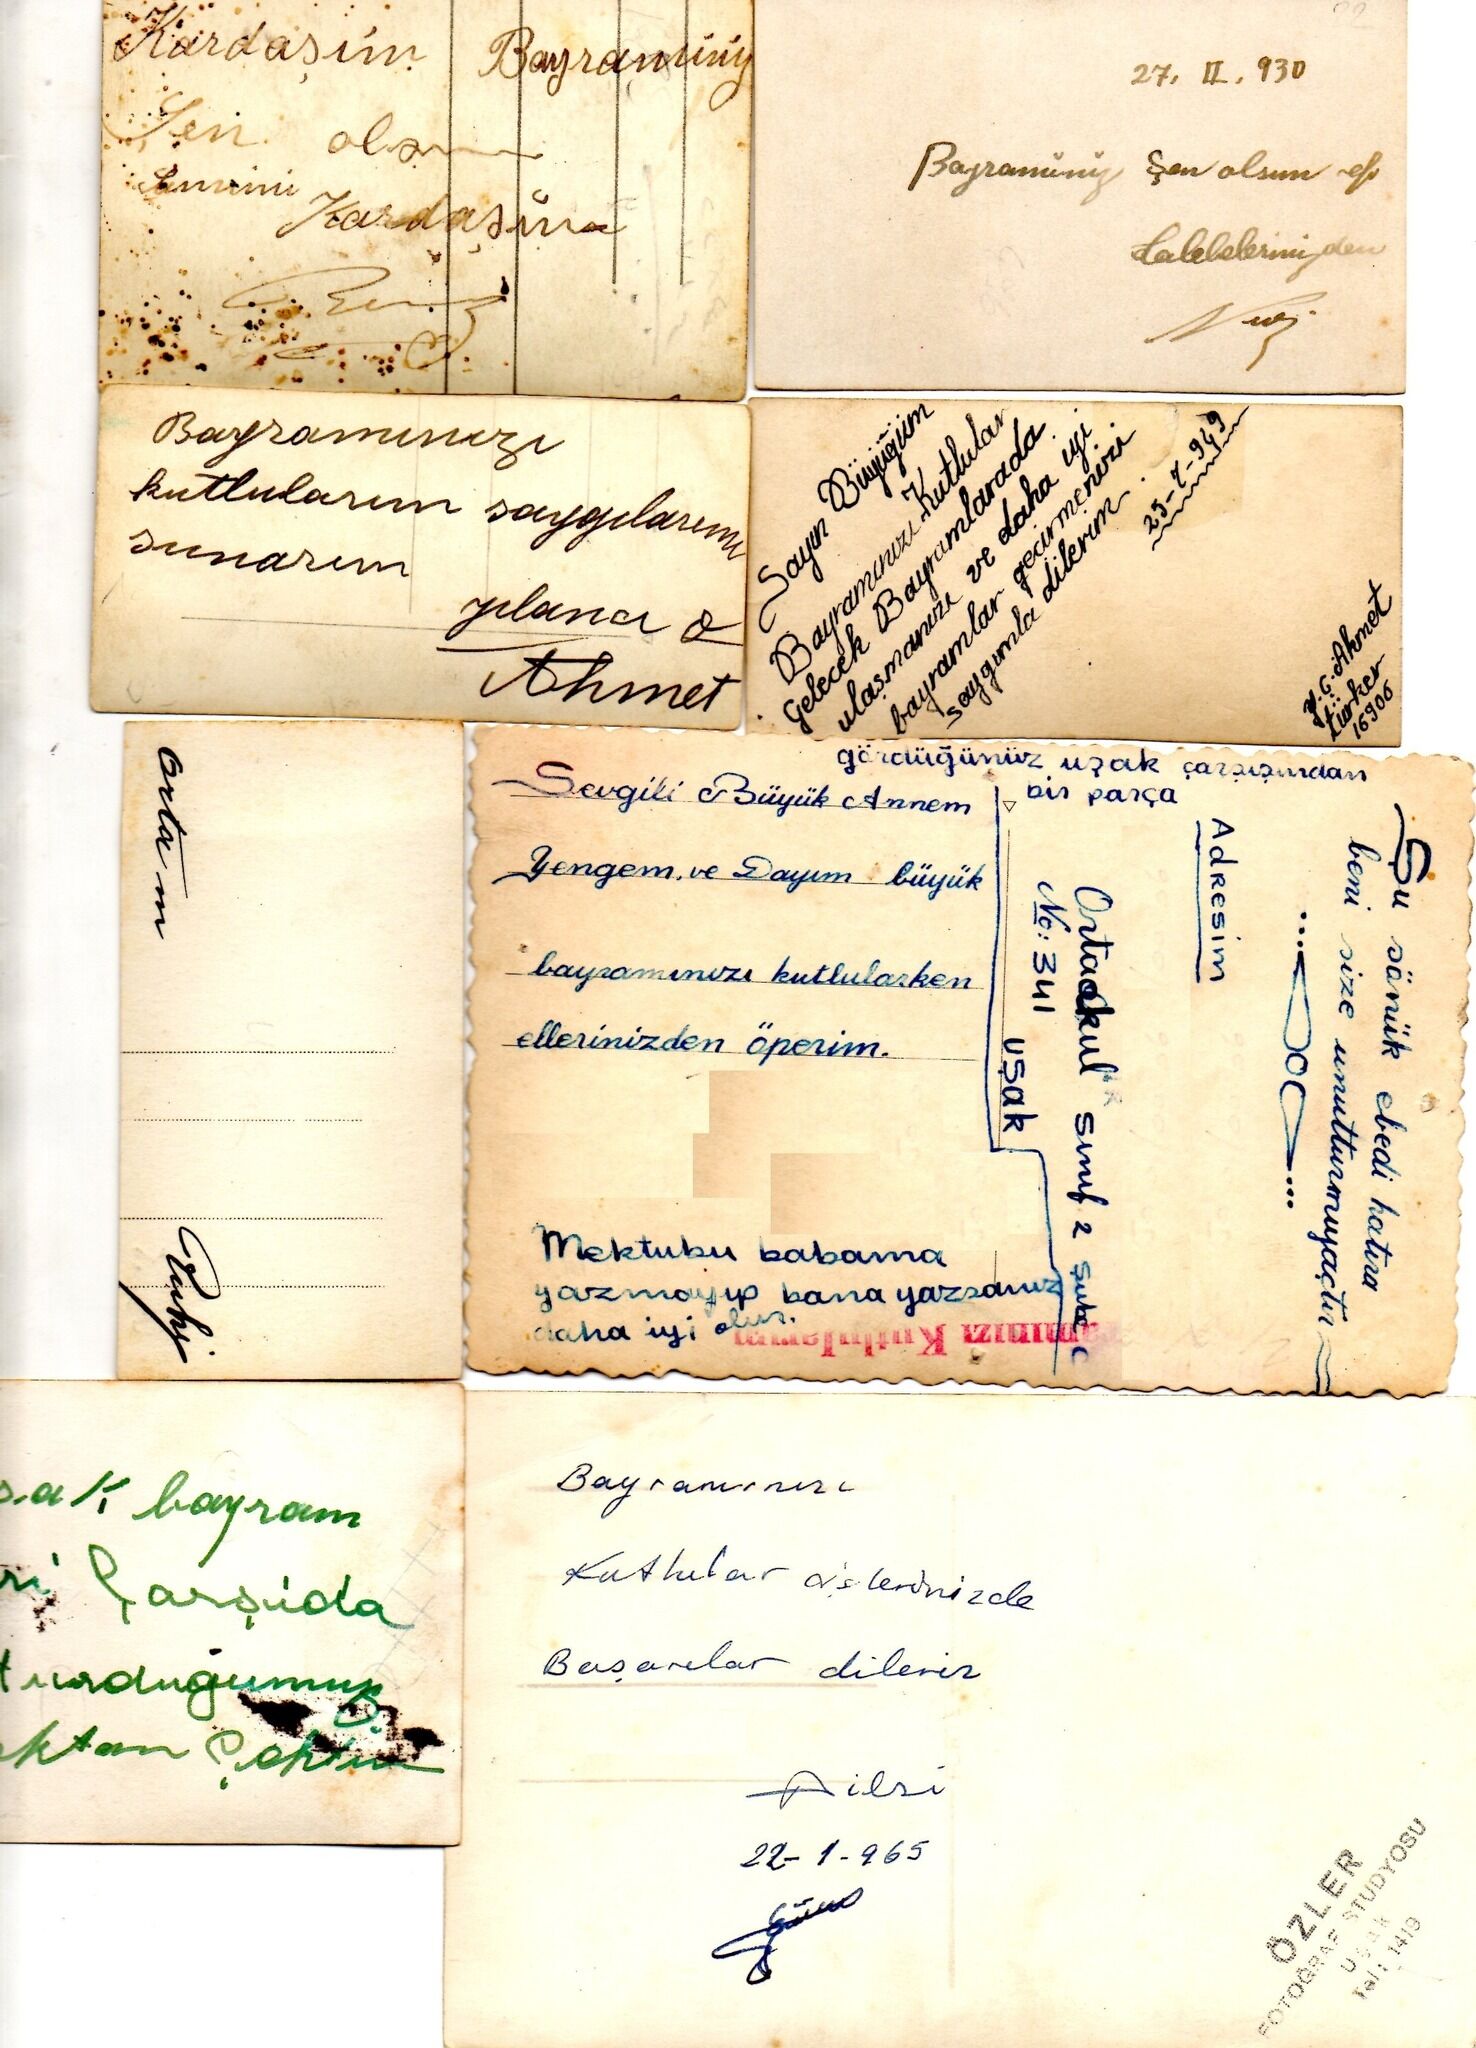 Kardaşım Bayramınız
Şen olsun
Kardaşına
27. II. 930
Bayramınız Şen olsun ef.
talebelerinizden
Bayramınızı
kutlularım saygılarımı
sunarım
Ahmet
Sayın Büyüğüm
Bayramınızı Kutlular
gelecek Bayramlarada
ulaşmanızı ve daha iyi
bayramlar geçirmenizi
saygımla dilerim.
25-7-949
Y.G. Ahmet
türker
16906
ortam
Ruhi
gördüğünüz uşak çarşısından
bir parça
Sevgili Büyük Annem
Yengem, ve Dayım büyük
bayramınızı kutlularken
ellerinizden öperim.
Mektubu babama
yazmayıp bana yazsanız
daha iyi olur.
amınızı Kutlularım
Adresim
Ortaokul sınıf 2 Şube C
No: 341 UŞAK
Şu sönük ebedi hatıra
beni size unutturmıyaçtır
şak bayram
ri Çarşıda
turduğumuz
ktan Çektim
Bayramınızı
Kutlular işlerinizde
Başarılar dileriz
22-1-965
ÖZLER
FOTOĞRAF STUDYOSU
UŞAK
Tel: 1419